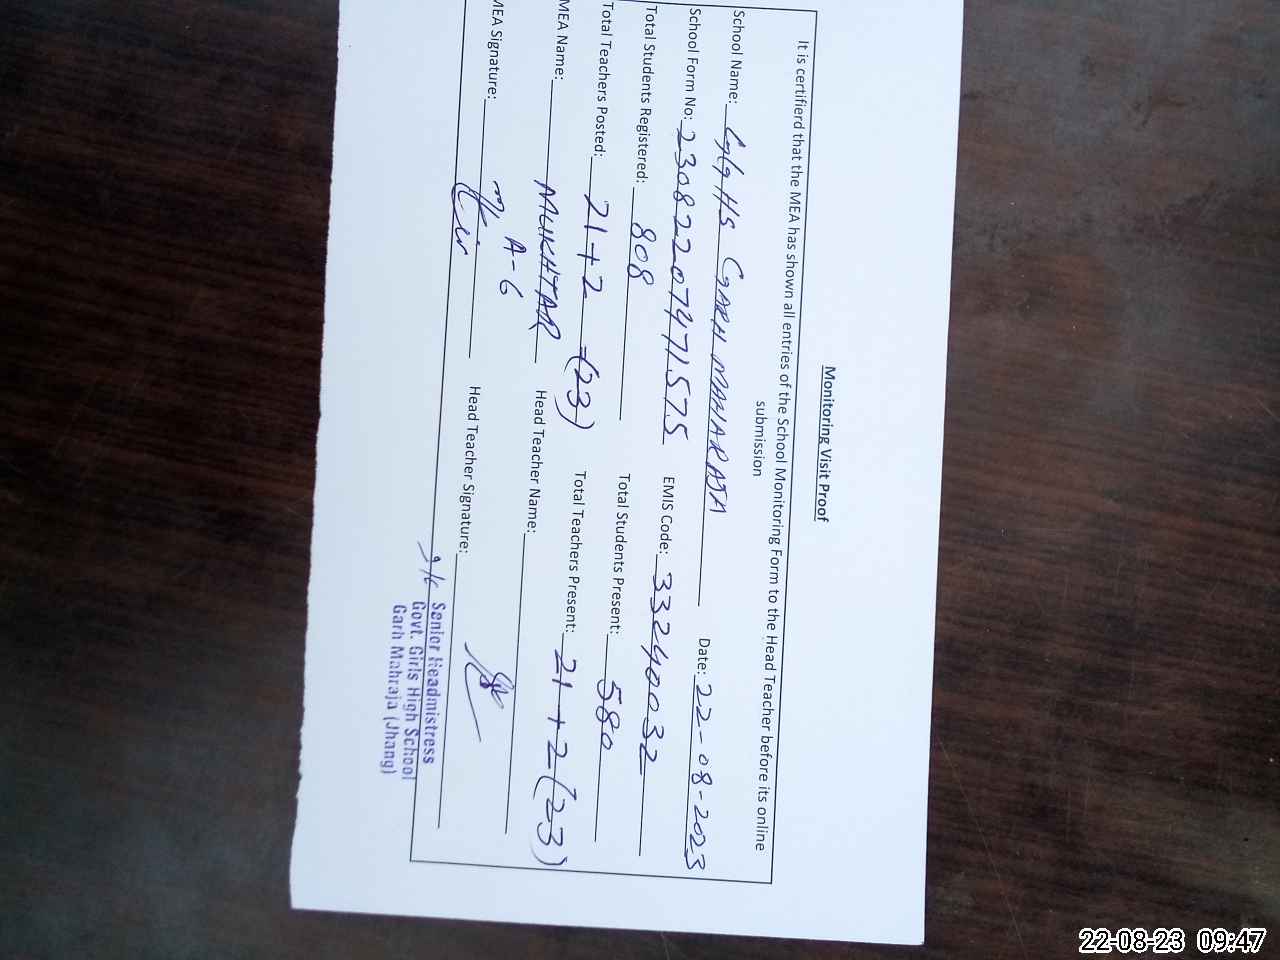 Monitoring Visit Proof
It is certifierd that the MEA has shown all entries of the School Monitoring Form to the Head Teacher before its online
submission
School Name: GGHS GARH MAHARAJA Date: 22-08-2023
School Form No: 230822074771575 EMIS Code: 33240032
Total Students Registered: 808 Total Students Present: 580
Total Teachers Posted: 21+2 (23) Total Teachers Present: 21+2 (23)
MEA Name: MUKHTAR Head Teacher Name:
A-6
MEA Signature: Head Teacher Signature:
I/C Senior Headmistress
Govt. Girls High School
Garh Mahraja (Jhang)
22-08-23 09:47